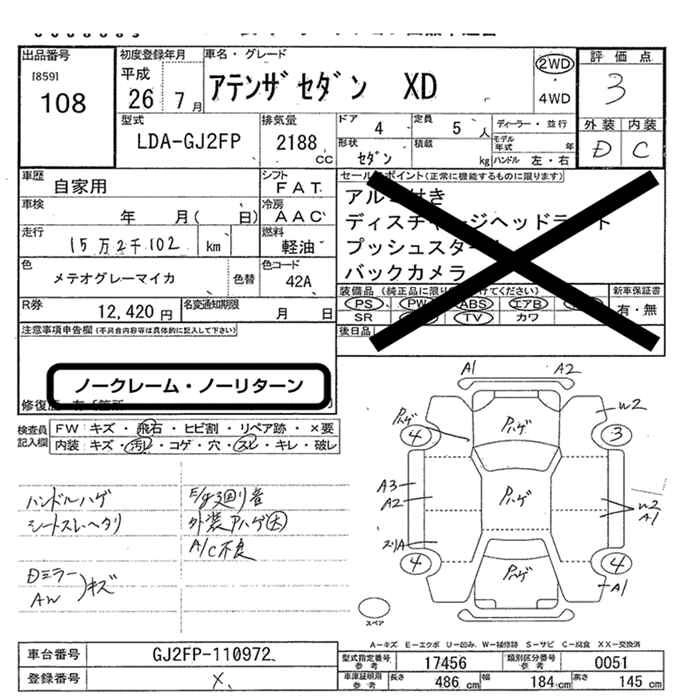 出品番号
[859]
108
初度登録年月
平成
26 7月
車名・グレード
アテンザセダン XD
2WD
4WD
評価点
3
外装 内装
D C
型式
LDA-GJ2FP
排気量
2188 cc
ドア 4
定員 5 人
形状 セダン
積載 kg
ディーラー・並行
モデル年式 年
ハンドル 左・右
車歴
自家用
シフト
FAT
車検
年 月( 日)
冷房
AAC
走行
15万2千102 km
燃料
軽油
色
メテオグレーマイカ
色替
色コード
42A
R券
12,420 円
名変通知期限
月 日
セールスポイント(正常に機能するものに限ります)
アルミ付き
ディスチャージヘッドライト
プッシュスタート
バックカメラ
装備品 (純正品に限りO付けてください)
PS PW ABS エアB
SR TV カワ
新車保証書
有・無
後日品
注意事項申告欄(不具合内容等は具体的に記入して下さい)
ノークレーム・ノーリターン
検査員記入欄
FW:キズ・飛石・ヒビ割・リペア跡・×要
内装:キズ・汚レ・コゲ・穴・スレ・キレ・破レ
ハンドルハゲ
シートスレヘタリ
Dミラー
AW
キズ
E/g廻り音
外装Pハゲ大
A/C不良
A1 A2
Pハゲ
4
Pハゲ
W2
3
A3
A2
Pハゲ
W2
A1
スリA
4
Pハゲ
4
A1
スペア
A-キズ E-エクボ U-凹み、W-補修跡 S-サビ C-腐食 XX-交換済
車台番号
GJ2FP-110972
登録番号
X
型式指定番号 参考
17456
類別区分番号 参考
0051
車庫証明用 参考
長さ 486 cm
幅 184 cm
高さ 145 cm